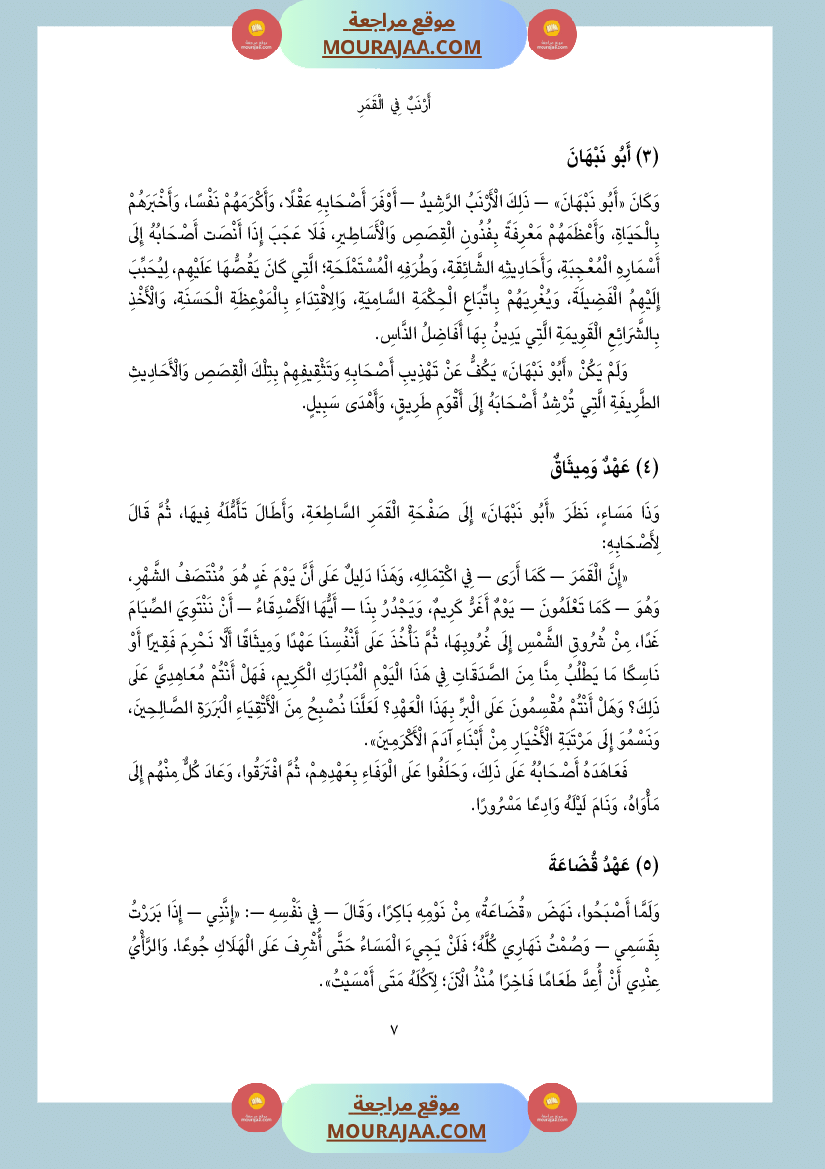 موقع مراجعة
MOURAJAA.COM
أَرْنَبٌ فِي الْقَمَرِ
(٣) أَبُو نَبْهَانَ
وَكَانَ «أَبُو نَبْهَانَ» — ذَلِكَ الْأَرْنَبُ الرَّشِيدُ — أَوْفَرَ أَصْحَابِهِ عَقْلًا، وَأَكْرَمَهُمْ نَفْسًا، وَأَخْبَرَهُمْ
بِالْحَيَاةِ، وَأَعْظَمَهُمْ مَعْرِفَةً بِفُنُونِ الْقِصَصِ وَالْأَسَاطِيرِ، فَلَا عَجَبَ إِذَا أَنْصَت أَصْحَابُهُ إِلَى
أَسْمَارِهِ الْمُعْجِبَةِ، وَأَحَادِيثِهِ الشَّائِقَةِ، وَطُرَفِهِ الْمُسْتَمْلَحَةِ؛ الَّتِي كَانَ يَقُصُّهَا عَلَيْهِم، لِيُحَبِّبَ
إِلَيْهِمُ الْفَضِيلَةَ، وَيُغْرِيَهُمْ بِاتِّبَاعِ الْحِكْمَةِ السَّامِيَةِ، وَالِاقْتِدَاءِ بِالْمَوْعِظَةِ الْحَسَنَةِ، وَالْأَخْذِ
بِالشَّرَائِعِ الْقَوِيمَةِ الَّتِي يَدِينُ بِهَا أَفَاضِلُ النَّاسِ.
وَلَمْ يَكُنْ «أَبُوْ نَبْهَانَ» يَكُفُّ عَنْ تَهْذِيبِ أَصْحَابِهِ وَتَثْقِيفِهِمْ بِتِلْكَ الْقِصَصِ وَالْأَحَادِيثِ
الطَّرِيفَةِ الَّتِي تُرْشِدُ أَصْحَابَهُ إِلَى أَقْوَمِ طَرِيقٍ، وَأَهْدَى سَبِيلٍ.
(٤) عَهْدٌ وَمِيثَاقٌ
وَذَا مَسَاءٍ، نَظَرَ «أَبُو نَبْهَانَ» إِلَى صَفْحَةِ الْقَمَرِ السَّاطِعَةِ، وَأَطَالَ تَأَمُّلَهُ فِيهَا، ثُمَّ قَالَ
لِأَصْحَابِهِ:
«إِنَّ الْقَمَرَ — كَمَا أَرَى — فِي اكْتِمَالِهِ، وَهَذَا دَلِيلٌ عَلَى أَنَّ يَوْمَ غَدٍ هُوَ مُنْتَصَفُ الشَّهْرِ،
وَهُوَ — كَمَا تَعْلَمُونَ — يَوْمٌ أَغَرُّ كَرِيمٌ، وَيَجْدُرُ بِنَا — أَيُّهَا الْأَصْدِقَاءُ — أَنْ نَنْتَوِيَ الصِّيَامَ
غَدًا، مِنْ شُرُوقِ الشَّمْسِ إِلَى غُرُوبِهَا، ثُمَّ نَأْخُذَ عَلَى أَنْفُسِنَا عَهْدًا وَمِيثَاقًا أَلَّا نَحْرِمَ فَقِيرًا أَوْ
نَاسِكًا مَا يَطْلُبُ مِنَّا مِنَ الصَّدَقَاتِ فِي هَذَا الْيَوْمِ الْمُبَارَكِ الْكَرِيمِ، فَهَلْ أَنْتُمْ مُعَاهِدِيَّ عَلَى
ذَلِكَ؟ وَهَلْ أَنْتُمْ مُقْسِمُونَ عَلَى الْبِرِّ بِهَذَا الْعَهْدِ؟ لَعَلَّنَا نُصْبِحُ مِنَ الْأَتْقِيَاءِ الْبَرَرَةِ الصَّالِحِينَ،
وَنَسْمُوَ إِلَى مَرْتَبَةِ الْأَخْيَارِ مِنْ أَبْنَاءِ آدَمَ الْأَكْرَمِينَ».
فَعَاهَدَهُ أَصْحَابُهُ عَلَى ذَلِكَ، وَحَلَفُوا عَلَى الْوَفَاءِ بِعَهْدِهِمْ، ثُمَّ افْتَرَقُوا، وَعَادَ كُلٌّ مِنْهُم إِلَى
مَأْوَاهُ، وَنَامَ لَيْلَهُ وَادِعًا مَسْرُورًا.
(٥) عَهْدُ قُضَاعَةَ
وَلَمَّا أَصْبَحُوا، نَهَضَ «قُضَاعَةُ» مِنْ نَوْمِهِ بَاكِرًا، وَقَالَ — فِي نَفْسِهِ —: «إِنَّنِي — إِذَا بَرَرْتُ
بِقَسَمِي — وَصُمْتُ نَهَارِي كُلَّهُ؛ فَلَنْ يَجِيءَ الْمَسَاءُ حَتَّى أُشْرِفَ عَلَى الْهَلَاكِ جُوعًا. وَالرَّأْيُ
عِنْدِي أَنْ أُعِدَّ طَعَامًا فَاخِرًا مُنْذُ الْآنَ؛ لِآكُلَهُ مَتَى أَمْسَيْتُ».
٧
موقع مراجعة
MOURAJAA.COM